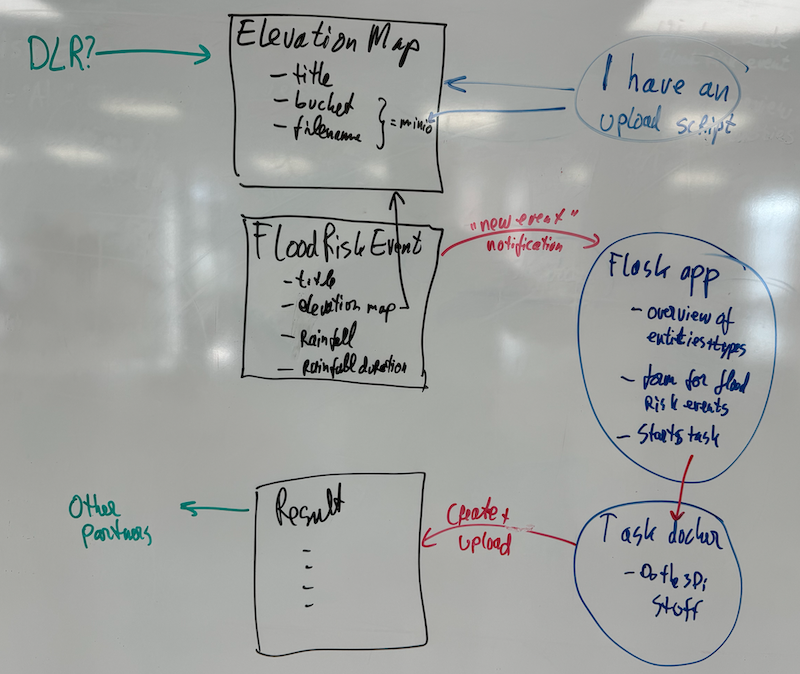 DLR?
Elevation Map
- title
- bucket
- filename
} = minio
I have an
upload script
FloodRiskEvent
- title
- elevation map
- Rainfall
- Rainfall duration
"new event"
notification
Flask app
- overview of
entities+types
- form for flood
Risk events
- Starts task
Other
partners
Result
-
-
-
-
Create +
upload
Task docker
- Do the 3Di
Stuff